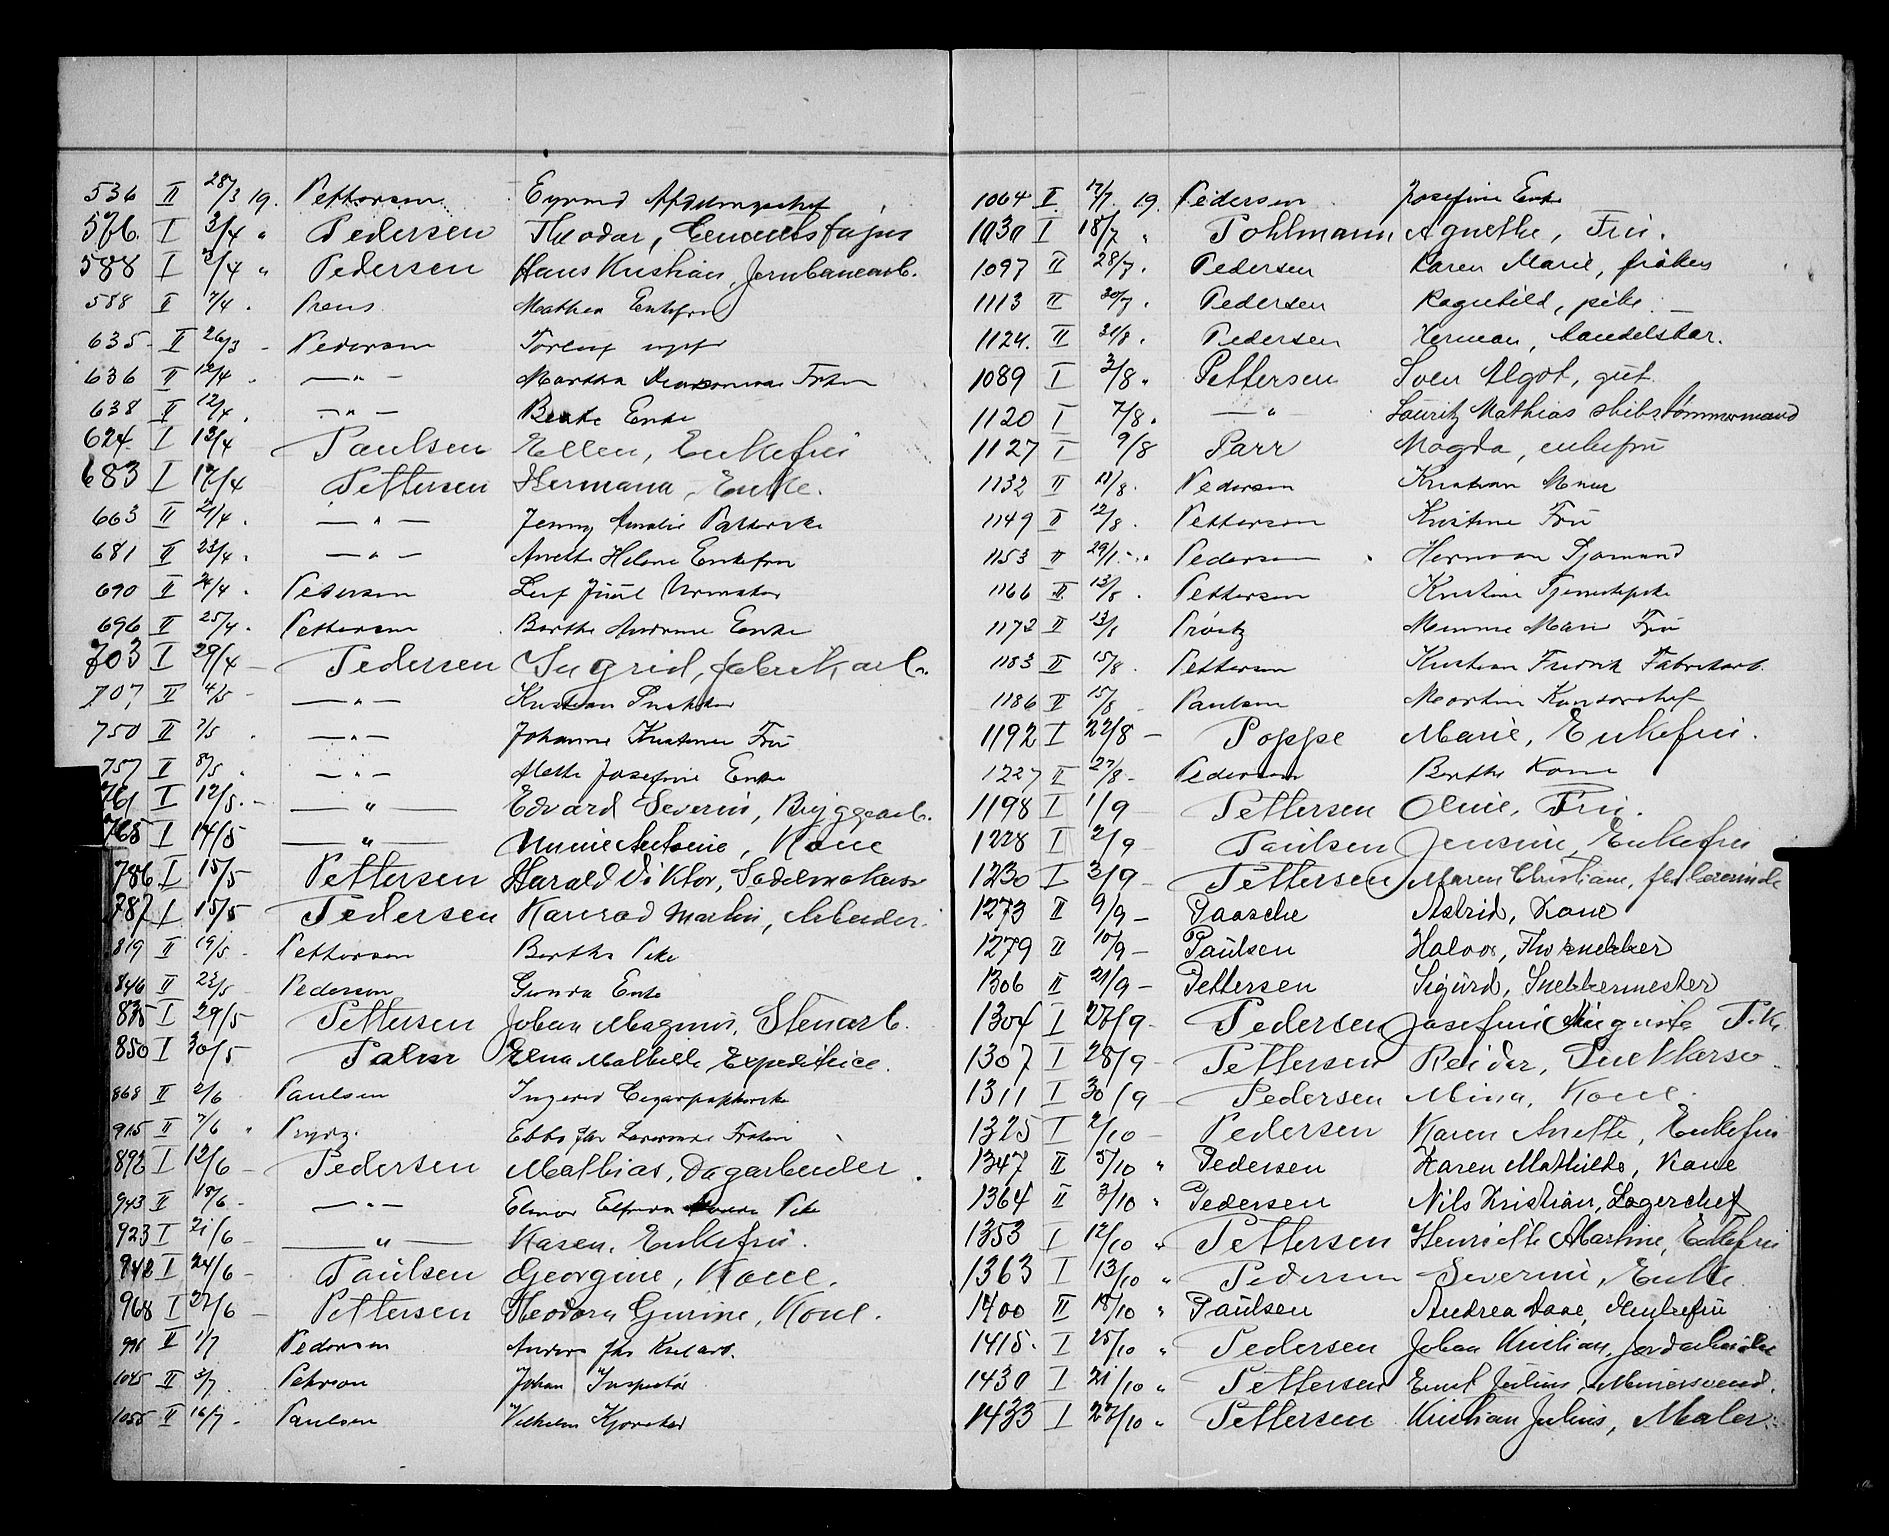 536 II 28/3 19. Pettersen Eyvind Afdelingschef
576. I 3/4 " Pedersen Theodor,
588 I 2/4 " Pedersen Hans Kristian, Jernbanearb.
588 II 7/4 . Prens Mathea Enkefru
635 II 26/3 - Pedersen
636 II 12/4 . —"— Martha Frøken
638 II 12/4 . —"— Enke
624 I 13/4 Paulsen Ellen, Enkefru
683 I 17/4 Pettersen Hermana, Enke.
663 II 21/4 . —"— Jenny Amalie
681 II 23/4 . —"— Anette Helene Enkefru
690 II 24/4 . Pedersen Leif Juul
696 II 25/4 . Pettersen Berthe Andrine Enke
703 I 29/4 — Pedersen Ingrid, fabrikarb.
707 II 4/5 - —"— Kristian Snekker
750 II 7/5 . —"— Johanne Kristine Fru
757 II 8/5 . —"— Mette Josefine Enke
761 I 12/5. - —"— Edvard Severin, Bryggearb.
765 I 14/5 —"— Antonie, Kone
786 I 15/5 Pettersen Harald Viktor, Sadelmaker
787 I 15/5 Pedersen Konrad Martin, Arbeider.
819 II 19/5 - Pettersen Berthe Pike
846 II 22/5 - Pedersen Gunda Enke
835 I 29/5 Pettersen Johan Magnus, Stenarb.
850 I 30/5 Elna Mathilde Expeditrice.
868 II 2/6 Paulsen Ingerid
915 II 7/6 " Prydz. Ebba fhv Lærerinde Frøken
892 I 12/6 — Pedersen Mathias, Dagarbeider.
943 II 18/6 - —"— Elinor Pike
923 I 21/6 - —"— Karen, Enkefru.
942 I 24/6 - Paulsen Georgine, Kone.
968 I 27/6 — Pettersen Theodora Gurine, Kone.
996 II 1/7 Pedersen Anders fhv
1045 II 5/7 . Peterson Johan Inspektør
1055 II 16/7 . Paulsen Vilhelm
1064 II 17/7. 19. Pedersen Josefine Enke
1030 I 18/7 " Pohlmann Agnethe, Fru.
1097 II 28/7. Pedersen Karen Marie, frøken
1113 II 30/7 . Pedersen Ragnhild, pike
1124. II 31/8 . Pedersen Herman, handelsbor.
1089 I 3/8 " Pettersen Sven Algot, gut
1120 I 7/8 . —"— Lauritz Mathias skibstømmermand
1127 I 9/8 Parr Magda, enkefru
1132 II 11/8. Pedersen Kristian
1149 II 12/8 . Pettersen Kristine Fru
1153 II 29/1 - . Pedersen Herman Sjømand
1166 II 13/8 . Pettersen Kristine Tjenestepike
1172 II 13/8 Prøitz Minnie Marie Fru
1183 II 15/8. Pettersen Kristian Fredrik Fabrikarb.
1186 II 15/8 - Paulsen Martin Kontorchef
1192 I 22/8 — Poppe Marie, Enkefru.
1227 II 27/8 - Pedersen Berthe Kone
1198 I 1/9 Pettersen Oline, Fru.
1228 I 2/9 Paulsen Jensine, Enkefru
1230 I 3/9 — Pettersen Maren Christiane, fhv lærerinde
1273 II 9/9 — Paasche Astrid, Kone
1279 II 10/9 — Paulsen
1306 II 21/9 — Pettersen Sigurd, Snekkermester
1304 I 27/9 - Pedersen Josefine Auguste T.K.
1307 I 28/9 — Pettersen Reidar,
1311 I 30/9 — Pedersen Mina, Kone.
1325 I 2/10 — Pedersen Karen Anette, Enkefru
1347 II 5/10 " Pedersen Karen Mathilde, Kone
1364 II 3/10 " Pedersen Nils Kristian, Lagerchef
1353 I 12/10 " Pettersen Henriette Martine, Enkefru
1363 I 13/10 " Pedersen Severine, Enke.
1400 II 18/10 " Paulsen Andrea Enkefru
1415. I 25/10 " Pedersen Johan Kristian, Jordarbeider
1430 I 21/10 " Pettersen Ernst Julius, Murersvend.
1433 I 27/10 " Pettersen Kristian Julius, Maler.